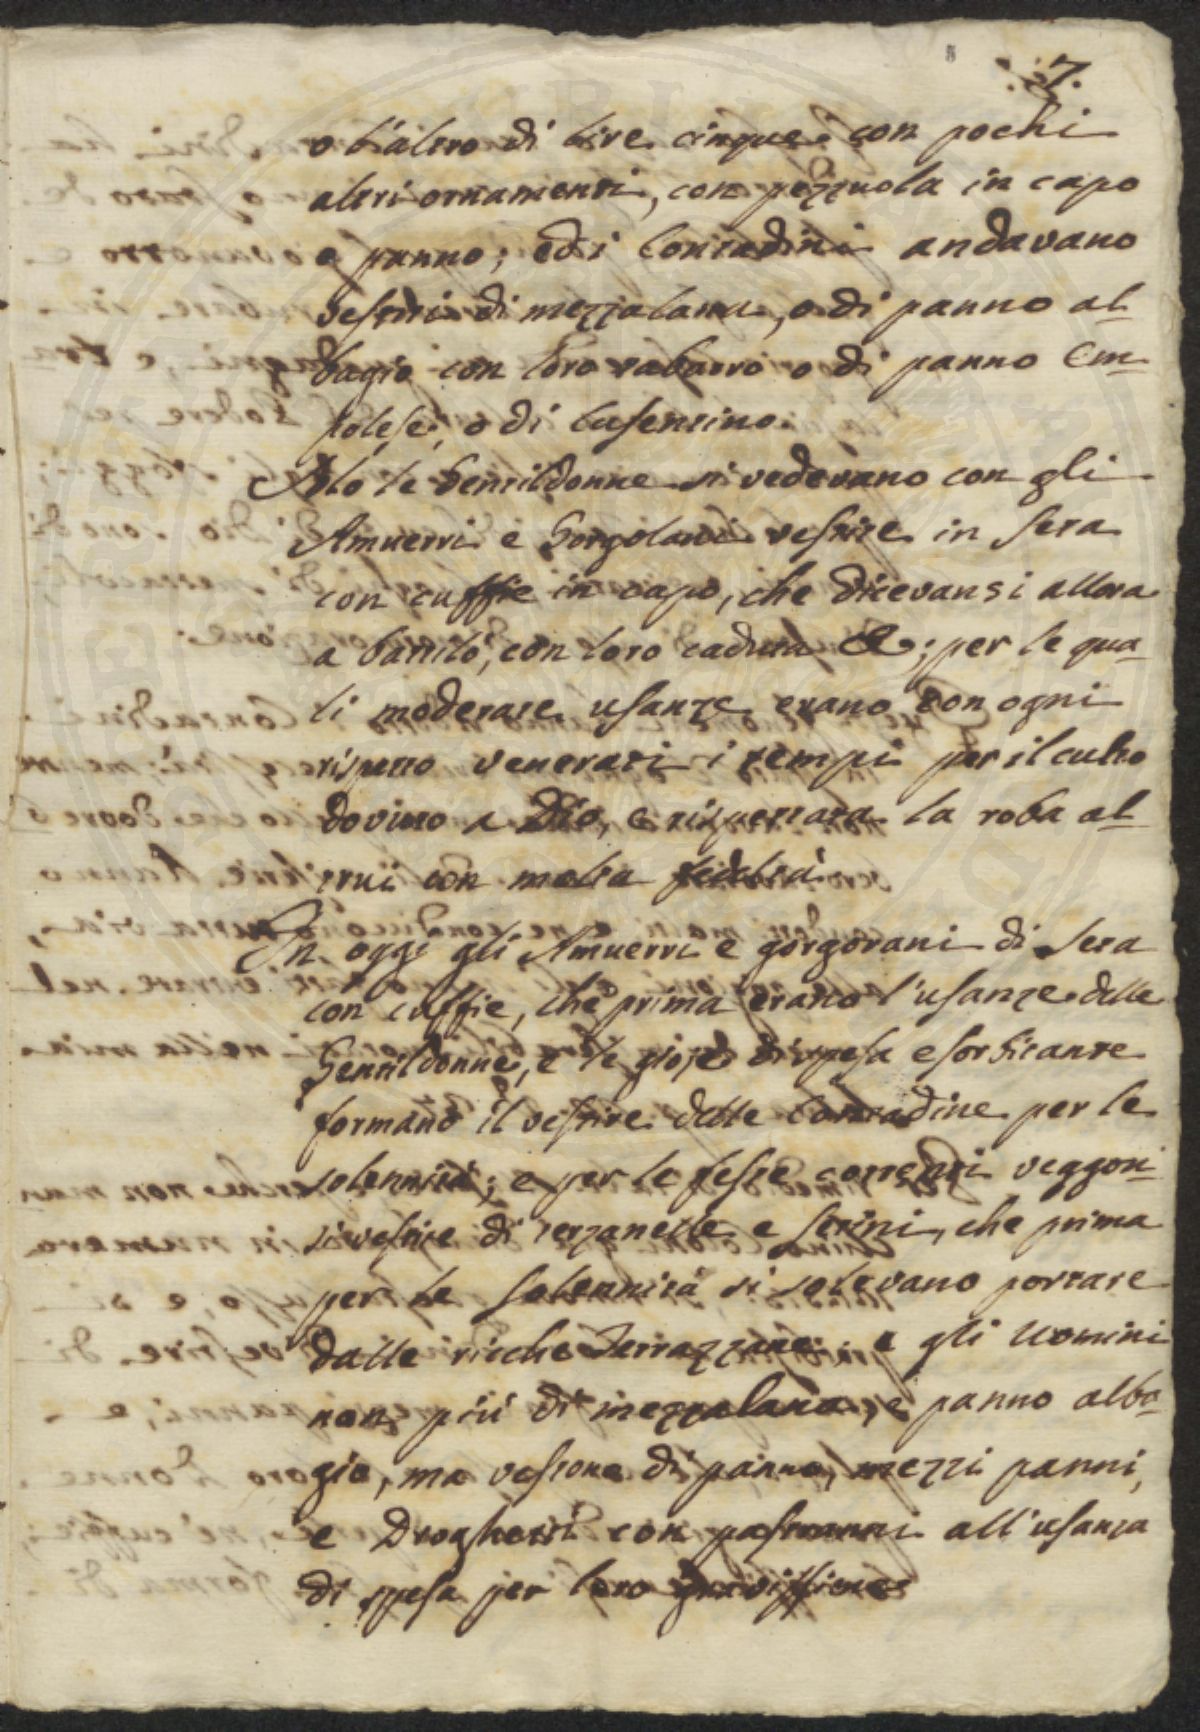 7.
o l'altro di lire cinque con pochi
altri ornamenti, con pezzuola in capo
e panno; ed i Contadini andavano
vestiti di mezzalana, o di panno al-
bagio con loro tabarro o di panno Em-
polese, o di Casentino.
Solo le Gentildonne si vedevano con gli
Amuerri e Gorgolani vestire in seta
con cuffie in capo, che dicevansi allora
a battilò, con loro caduta &; per le qua-
li moderate usanze erano con ogni
rispetto venerati i tempi per il culto
dovuto a Dio, e rispettata la roba al-
trui con molta fedeltà.
In oggi gli Amuerri e gorgorani di seta
con cuffie, che prima erano l'usanze delle
Gentildonne, e le gioje di spesa esorbitante
formano il vestire delle Contadine per le
solennità; e per le feste correnti veggon-
si vestire di terzanelle e setini, che prima
per le solennità si solevano portare
dalle ricche Terrazzane, e gli Uomini
non più di mezzalana, e panno alba-
gio, ma vestono di panno, mezzi panni,
e Droghetti con pastranni all'usanza
di spesa per loro gravissima